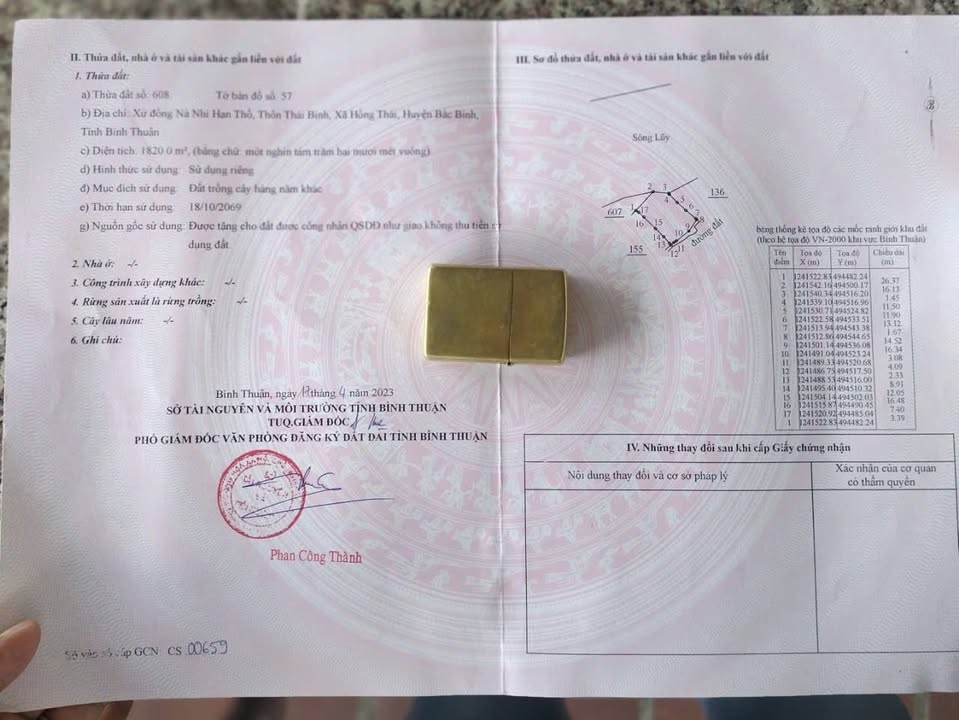 II. Thửa đất, nhà ở và tài sản khác gắn liền với đất
1. Thửa đất:
a) Thửa đất số: 608 Tờ bản đồ số: 57
b) Địa chỉ: Xứ đồng Nà Nhi Hạn Thổ, Thôn Thái Bình, Xã Hồng Thái, Huyện Bắc Bình,
Tỉnh Bình Thuận
c) Diện tích: 1820.0 m², (bằng chữ: một nghìn tám trăm hai mươi mét vuông)
d) Hình thức sử dụng: Sử dụng riêng
đ) Mục đích sử dụng: Đất trồng cây hàng năm khác
e) Thời hạn sử dụng: 18/10/2069
g) Nguồn gốc sử dụng: Được tặng cho đất được công nhận QSDĐ như giao không thu tiền sử
dụng đất.
2. Nhà ở: -/-
3. Công trình xây dựng khác: -/-
4. Rừng sản xuất là rừng trồng: -/-
5. Cây lâu năm: -/-
6. Ghi chú:
Bình Thuận, ngày 17 tháng 4 năm 2023
SỞ TÀI NGUYÊN VÀ MÔI TRƯỜNG TỈNH BÌNH THUẬN
TUQ.GIÁM ĐỐC
PHÓ GIÁM ĐỐC VĂN PHÒNG ĐĂNG KÝ ĐẤT ĐAI TỈNH BÌNH THUẬN
Phan Công Thành
Số vào sổ cấp GCN: CS 00659
III. Sơ đồ thửa đất, nhà ở và tài sản khác gắn liền với đất
B
Sông Lũy
136
607
155
đường đất
bảng thống kê tọa độ các mốc ranh giới khu đất
(theo hệ tọa độ VN-2000 khu vực Bình Thuận)
Tên điểm Tọa độ X (m) Tọa độ Y (m) Chiều dài (m)
1 1241522.83 494482.24
26.37
2 1241542.16 494500.17
16.13
3 1241540.34 494516.20
1.45
4 1241539.10 494516.96
11.50
5 1241530.71 494524.82
11.90
6 1241522.58 494533.51
13.12
7 1241513.94 494543.38
1.67
8 1241512.86 494544.65
14.52
9 1241501.14 494536.08
16.34
10 1241491.04 494523.24
3.08
11 1241489.33 494520.68
4.09
12 1241486.75 494517.50
2.33
13 1241488.53 494516.00
8.91
14 1241495.40 494510.32
12.05
15 1241504.14 494502.03
16.48
16 1241515.87 494490.45
7.40
17 1241520.92 494485.04
3.39
1 1241522.83 494482.24
IV. Những thay đổi sau khi cấp Giấy chứng nhận
Nội dung thay đổi và cơ sở pháp lý
Xác nhận của cơ quan
có thẩm quyền